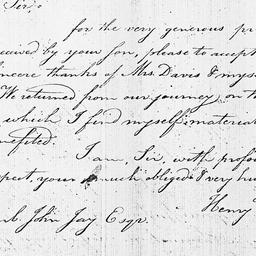 Sir,
for the very generous pr
ceived by your son, please to accept
incere thanks of Mrs. Davis & myse
We returned from our journey on th
which I find myself material
nefited.
I am, Sir, with profou
spect, your much obliged & very hu
Henry
John Jay Esqr.